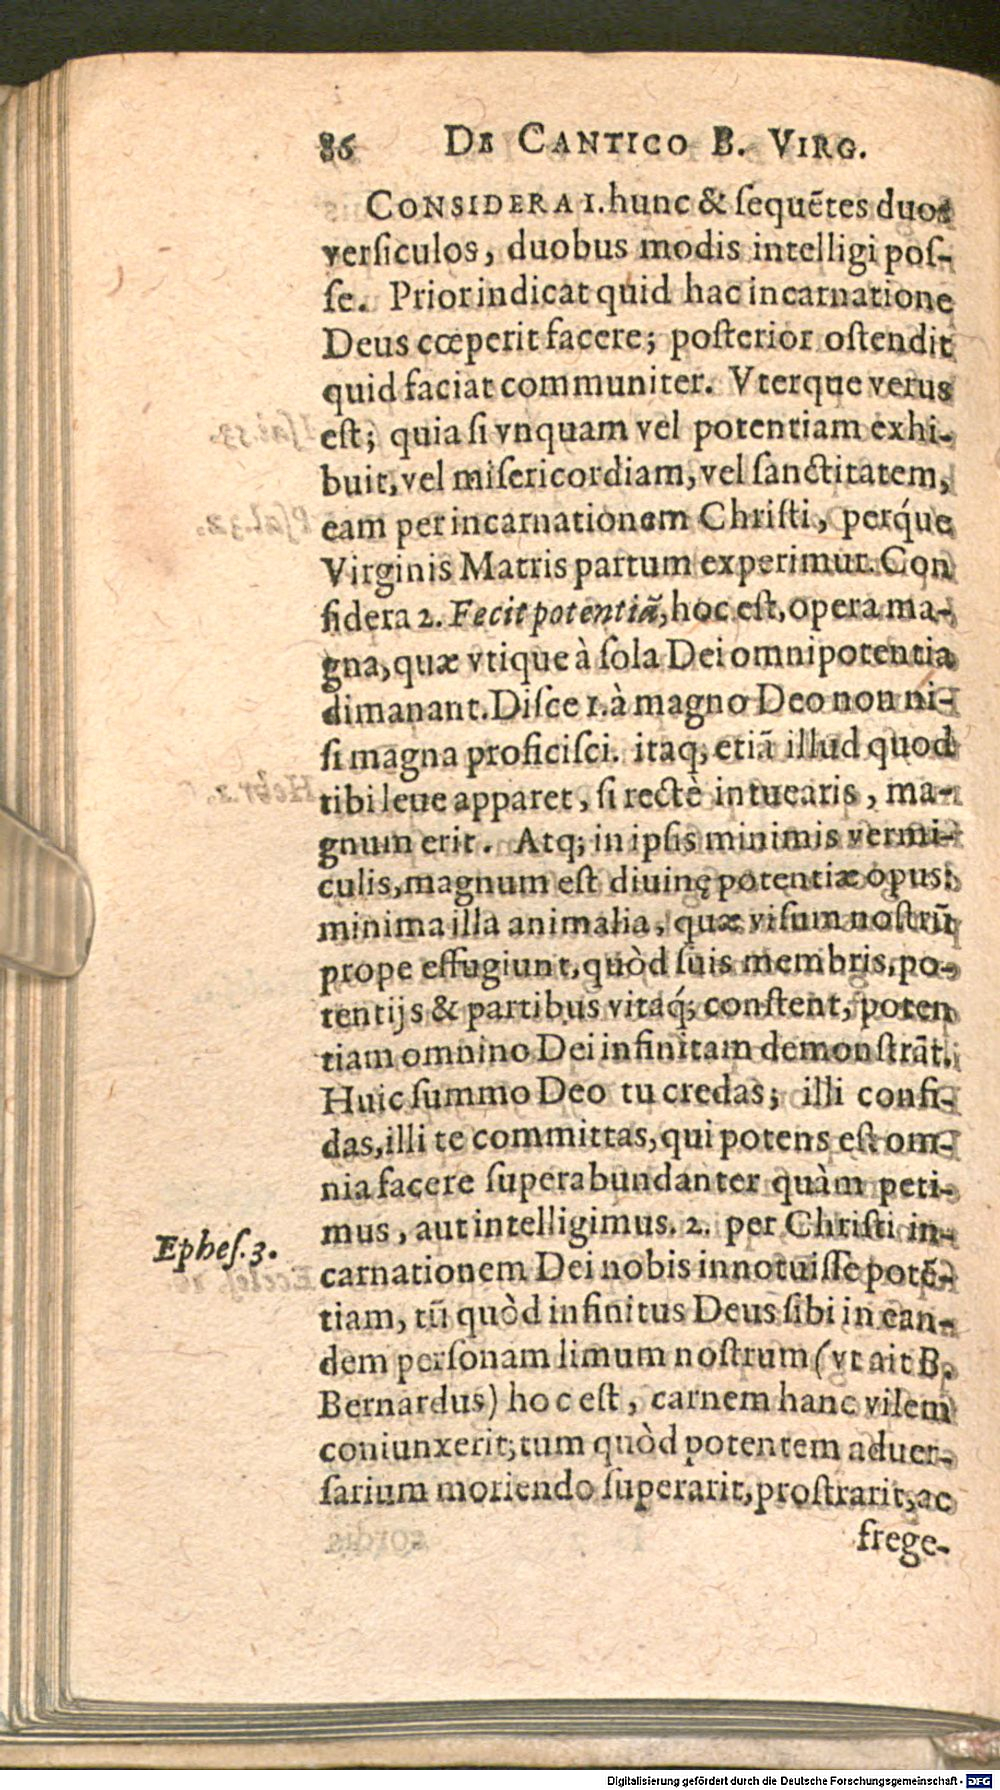 86 DE CANTICO B. VIRG.
CONSIDERA 1. hunc & ſequẽtes duos
verſiculos, duobus modis intelligi poſ-
ſe. Prior indicat quid hac incarnatione
Deus cœperit facere; poſterior oſtendit
quid faciat communiter. Vterque verus
eſt; quia ſi vnquam vel potentiam exhi-
buit, vel miſericordiam, vel ſanctitatem,
eam per incarnationem Chriſti, perq́ue
Virginis Matris partum experimur. Con
ſidera 2. Fecit potentiã, hoc eſt, opera ma-
gna, quæ vtique à ſola Dei omnipotentia
dimanant. Diſce 1. à magno Deo non ni-
ſi magna proficiſci. itaq; etiã illud quod
tibi leue apparet, ſi rectè intuearis, ma-
gnum erit. Atq; in ipſis minimis vermi-
culis, magnum eſt diuinę potentiæ opus:
minima illa animalia, quæ viſum noſtrũ
prope effugiunt, quòd ſuis membris, po-
tentijs & partibus vitaq́; conſtent, poten
tiam omnino Dei infinitam demonſtrãt.
Huic ſummo Deo tu credas; illi confi-
das, illi te committas, qui potens eſt om-
nia facere ſuperabundanter quàm peti-
mus, aut intelligimus. 2. per Chriſti in-
Epheſ. 3.
carnationem Dei nobis innotuiſſe potẽ-
tiam, tũ quòd infinitus Deus ſibi in ean-
dem perſonam limum noſtrum (vt ait B.
Bernardus) hoc eſt, carnem hanc vilem
coniunxerit; tum quòd potentem aduer-
ſarium moriendo ſuperarit, proſtrarit, ac
frege-
Digitalisierung gefördert durch die Deutsche Forschungsgemeinschaft - DFG